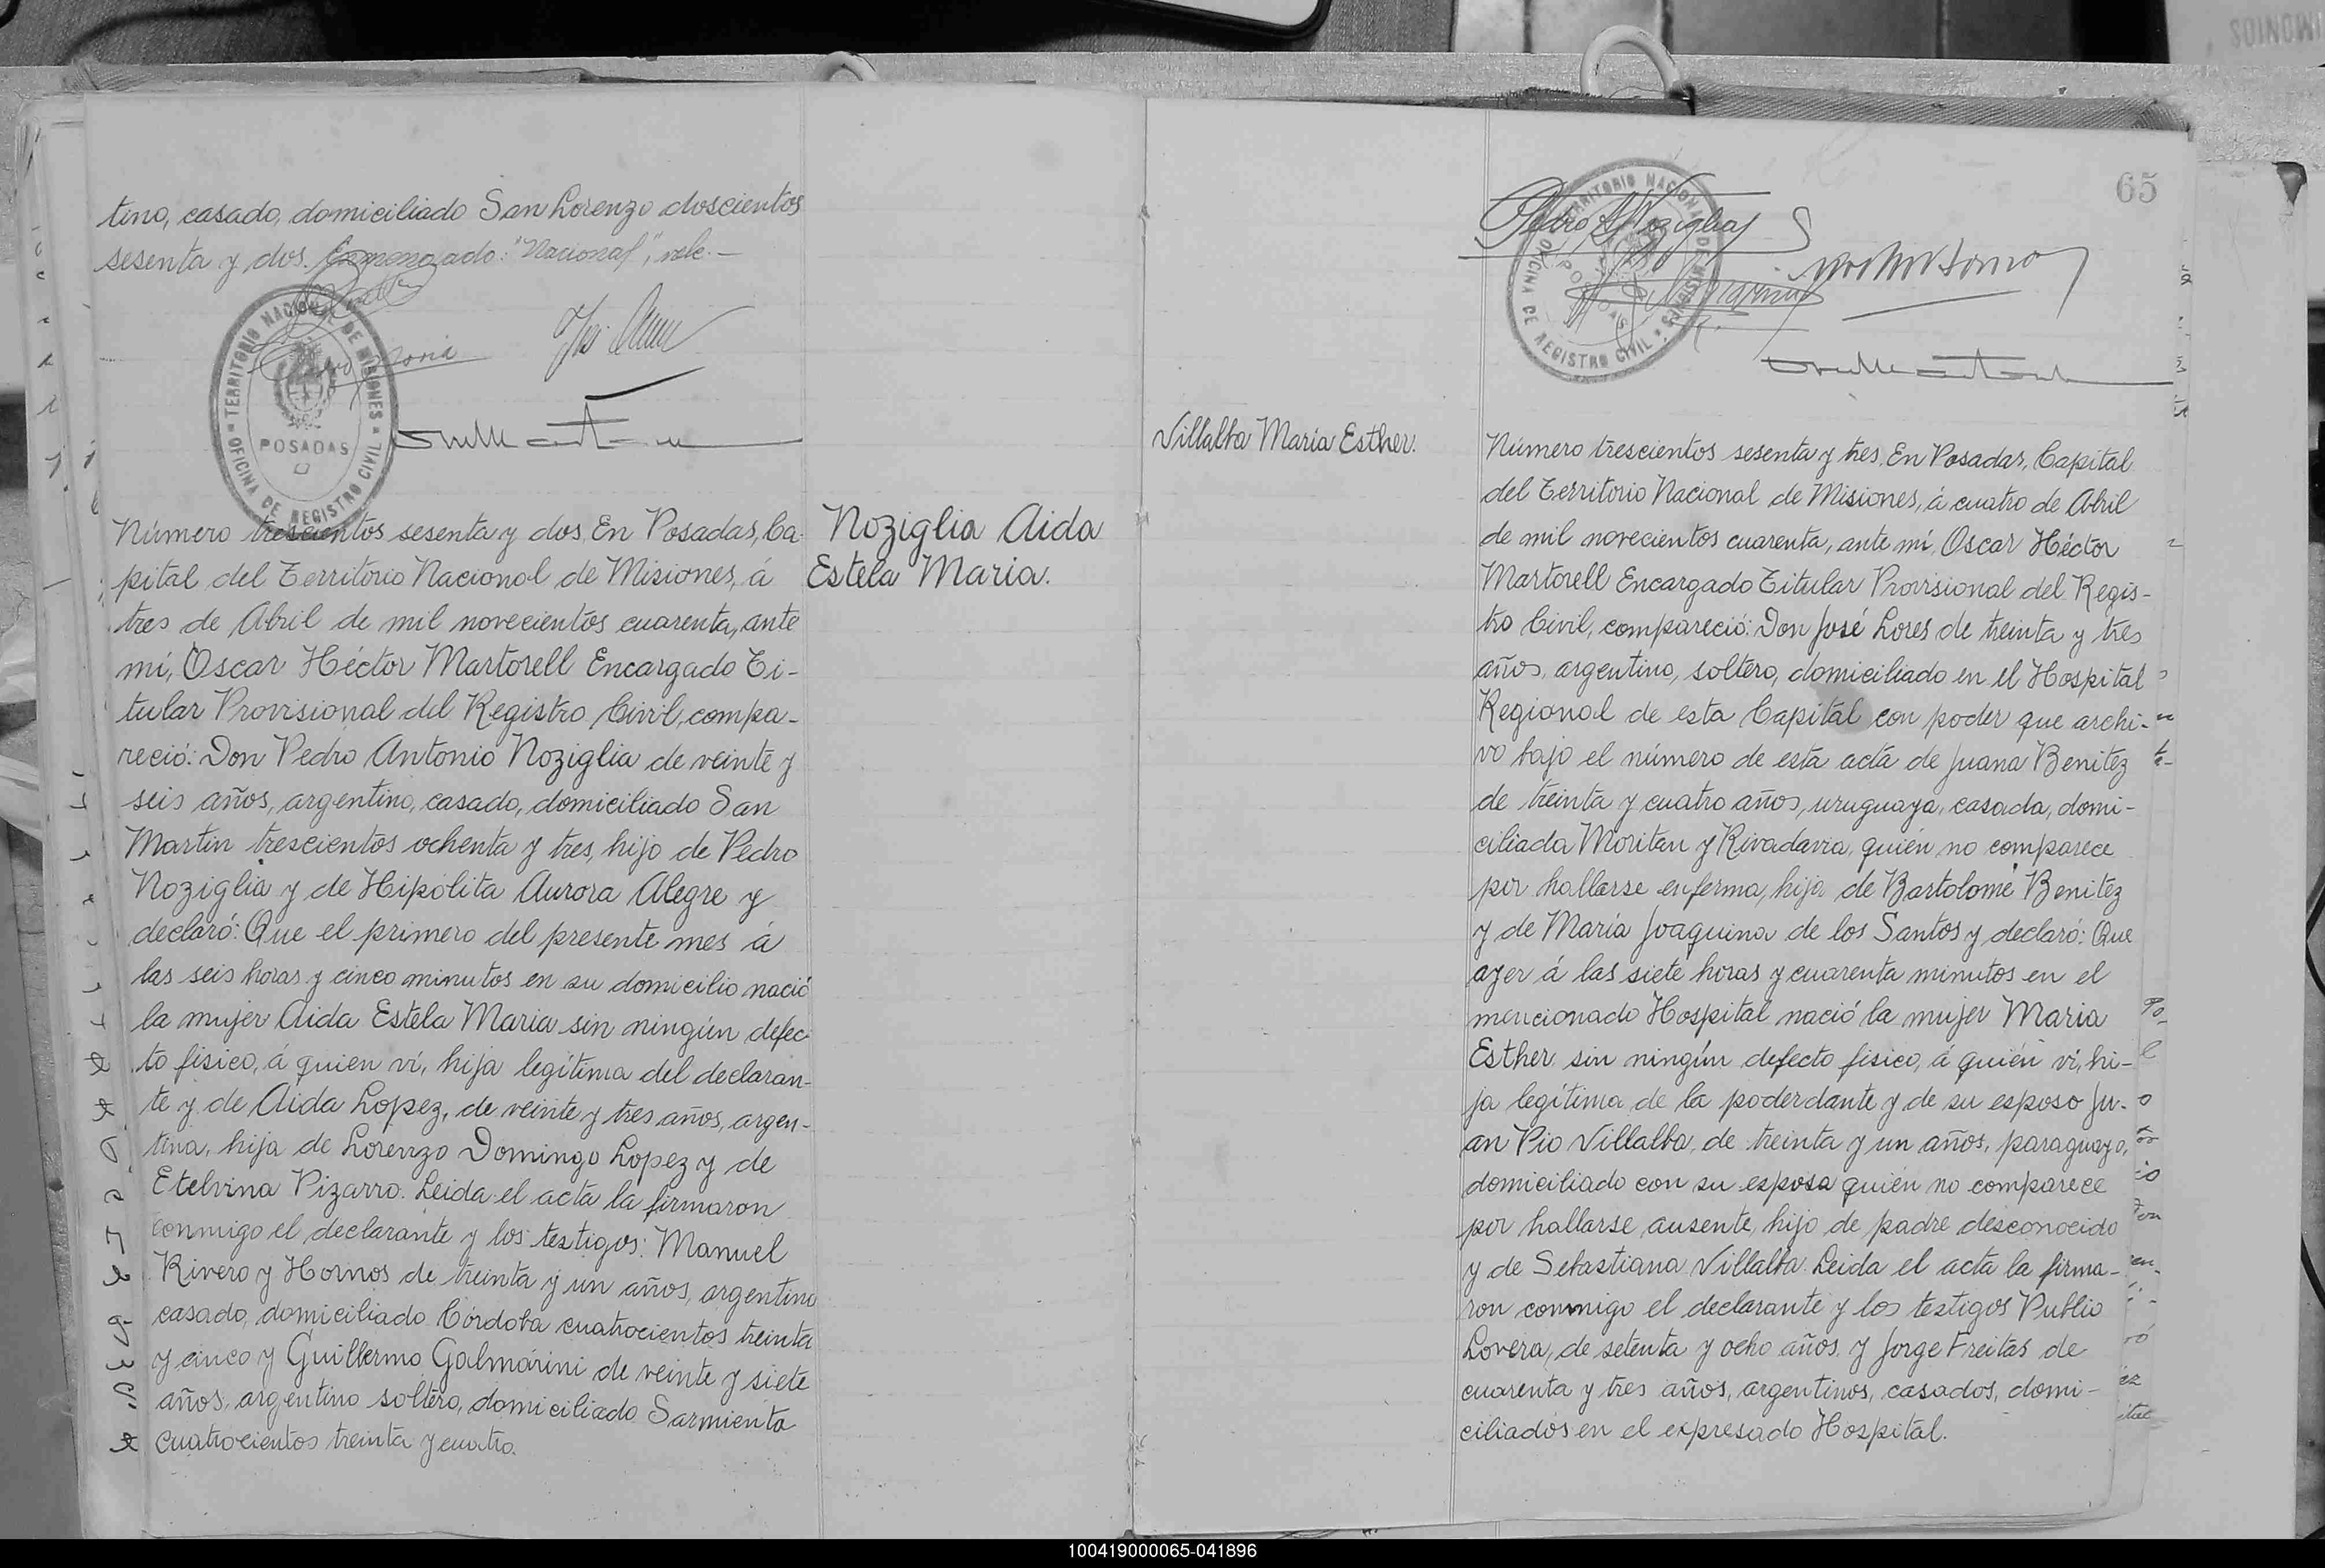 tino, casado, domiciliado San Lorenzo doscientos
sesenta y dos. Enmendado: "Nacional", vale.—
TERRITORIO NACIONAL DE MISIONES
OFICINA DE REGISTRO CIVIL
POSADAS
Número trescientos sesenta y dos. En Posadas, Ca-
pital del Territorio Nacional de Misiones, á
tres de Abril de mil novecientos cuarenta, ante
mí, Oscar Héctor Martorell Encargado Ti-
tular Provisional del Registro Civil, compa-
reció: Don Pedro Antonio Noziglia de veinte y
seis años, argentino, casado, domiciliado San
Martin trescientos ochenta y tres, hijo de Pedro
Noziglia y de Hipólita Aurora Alegre y
declaró: Que el primero del presente mes á
las seis horas y cinco minutos en su domicilio nació
la mujer Aida Estela Maria sin ningún defec-
to fisico, á quien ví, hija legítima del declaran-
te y de Aida Lopez, de veinte y tres años, argen-
tina, hija de Lorenzo Domingo Lopez y de
Etelvina Pizarro. Leida el acta la firmaron
conmigo el declarante y los testigos: Manuel
Rivero y Hornos de treinta y un años, argentino
casado, domiciliado Córdoba cuatrocientos treinta
y cinco y Guillermo Galmarini de veinte y siete
años, argentino soltero, domiciliado Sarmiento
cuatrocientos treinta y cuatro.
Noziglia Aida
Estela Maria.
65
Pedro A Noziglia
TERRITORIO NACIONAL DE MISIONES
OFICINA DE REGISTRO CIVIL
POSADAS
Villalba María Esther.
Número trescientos sesenta y tres. En Posadas, Capital
del Territorio Nacional de Misiones, á cuatro de Abril
de mil novecientos cuarenta, ante mí, Oscar Héctor
Martorell Encargado Titular Provisional del Regis-
tro Civil, compareció: Don José Lores de treinta y tres
años, argentino, soltero, domiciliado en el Hospital
Regional de esta Capital con poder que archi-
vo bajo el número de esta acta de Juana Benitez
de treinta y cuatro años, uruguaya, casada, domi-
ciliada Moritan y Rivadavia, quién no comparece
por hallarse enferma, hija de Bartolomé Benitez
y de María Joaquina de los Santos y declaró: Que
ayer á las siete horas y cuarenta minutos en el
mencionado Hospital nació la mujer Maria
Esther sin ningún defecto fisico, á quién ví, hi-
ja legítima de la poderdante y de su esposo Ju-
an Pio Villalba, de treinta y un años, paraguayo,
domiciliado con su esposa quién no comparece
por hallarse ausente, hijo de padre desconocido
y de Sebastiana Villalba. Leida el acta la firma-
ron conmigo el declarante y los testigos Publio
Lovera, de setenta y ocho años y Jorge Freitas de
cuarenta y tres años, argentinos, casados, domi-
ciliados en el expresado Hospital.
100419000065-041896